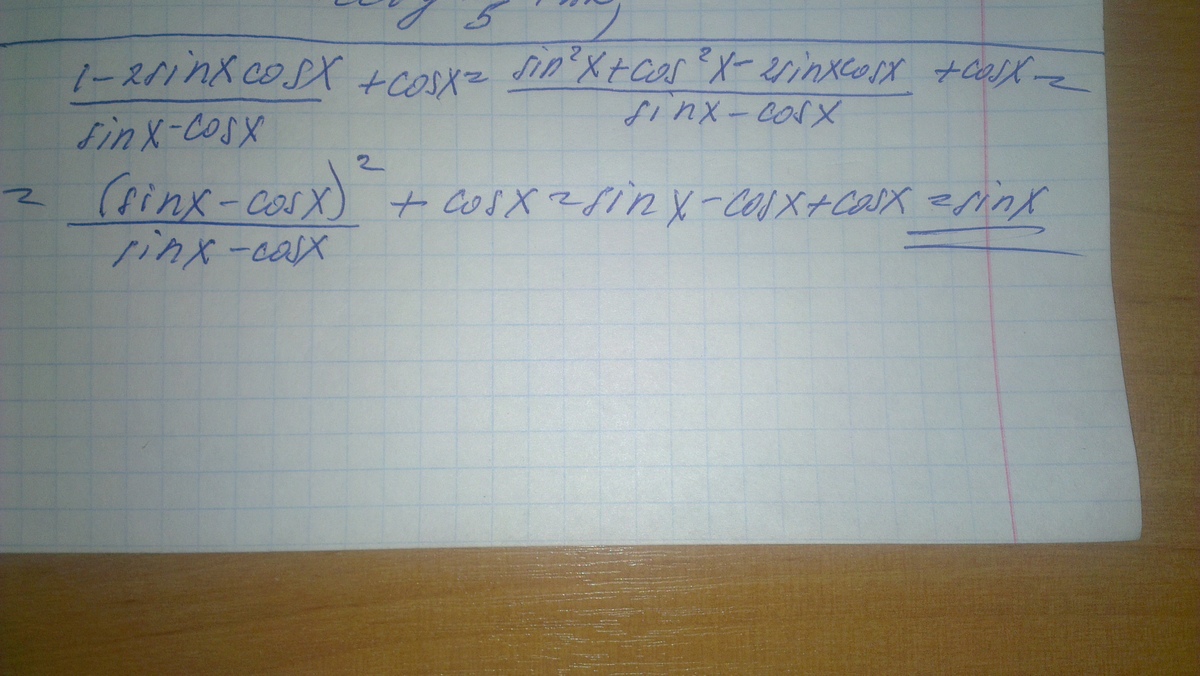 1-2sinxcosx/sinx-cosx + cosx = sin²x+cos²x-2sinxcosx/sinx-cosx + cosx =
= (sinx-cosx)²/sinx-cosx + cosx = sinx-cosx+cosx = sinx